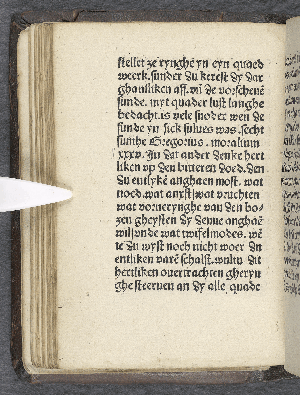 stellet ze rynghe yn eyn quaed
werck. sunder du kerest dy dar
ghantliken aff. vn̄ de vorschenē
sunde. myt quader lust langhe
bedacht. is vele snoder wen de
sunde yn sick sulues was. secht
sunte Gregorius. moralium
xxxv. In dat ander denke hert
liken vp den bitteren doed. den
du entlykē anghaen most. wat
noed. wat anxst wat vruchten
wat voruerynghe van den bo-
zen gheysten dy denne anghaē
wil vnde wat twifelmodes. wē
te du wyst noch nicht woer du
entliken varē schalst. wultu dit
hertliken ouertrachten gheryn
ghe steruen an dy alle quade